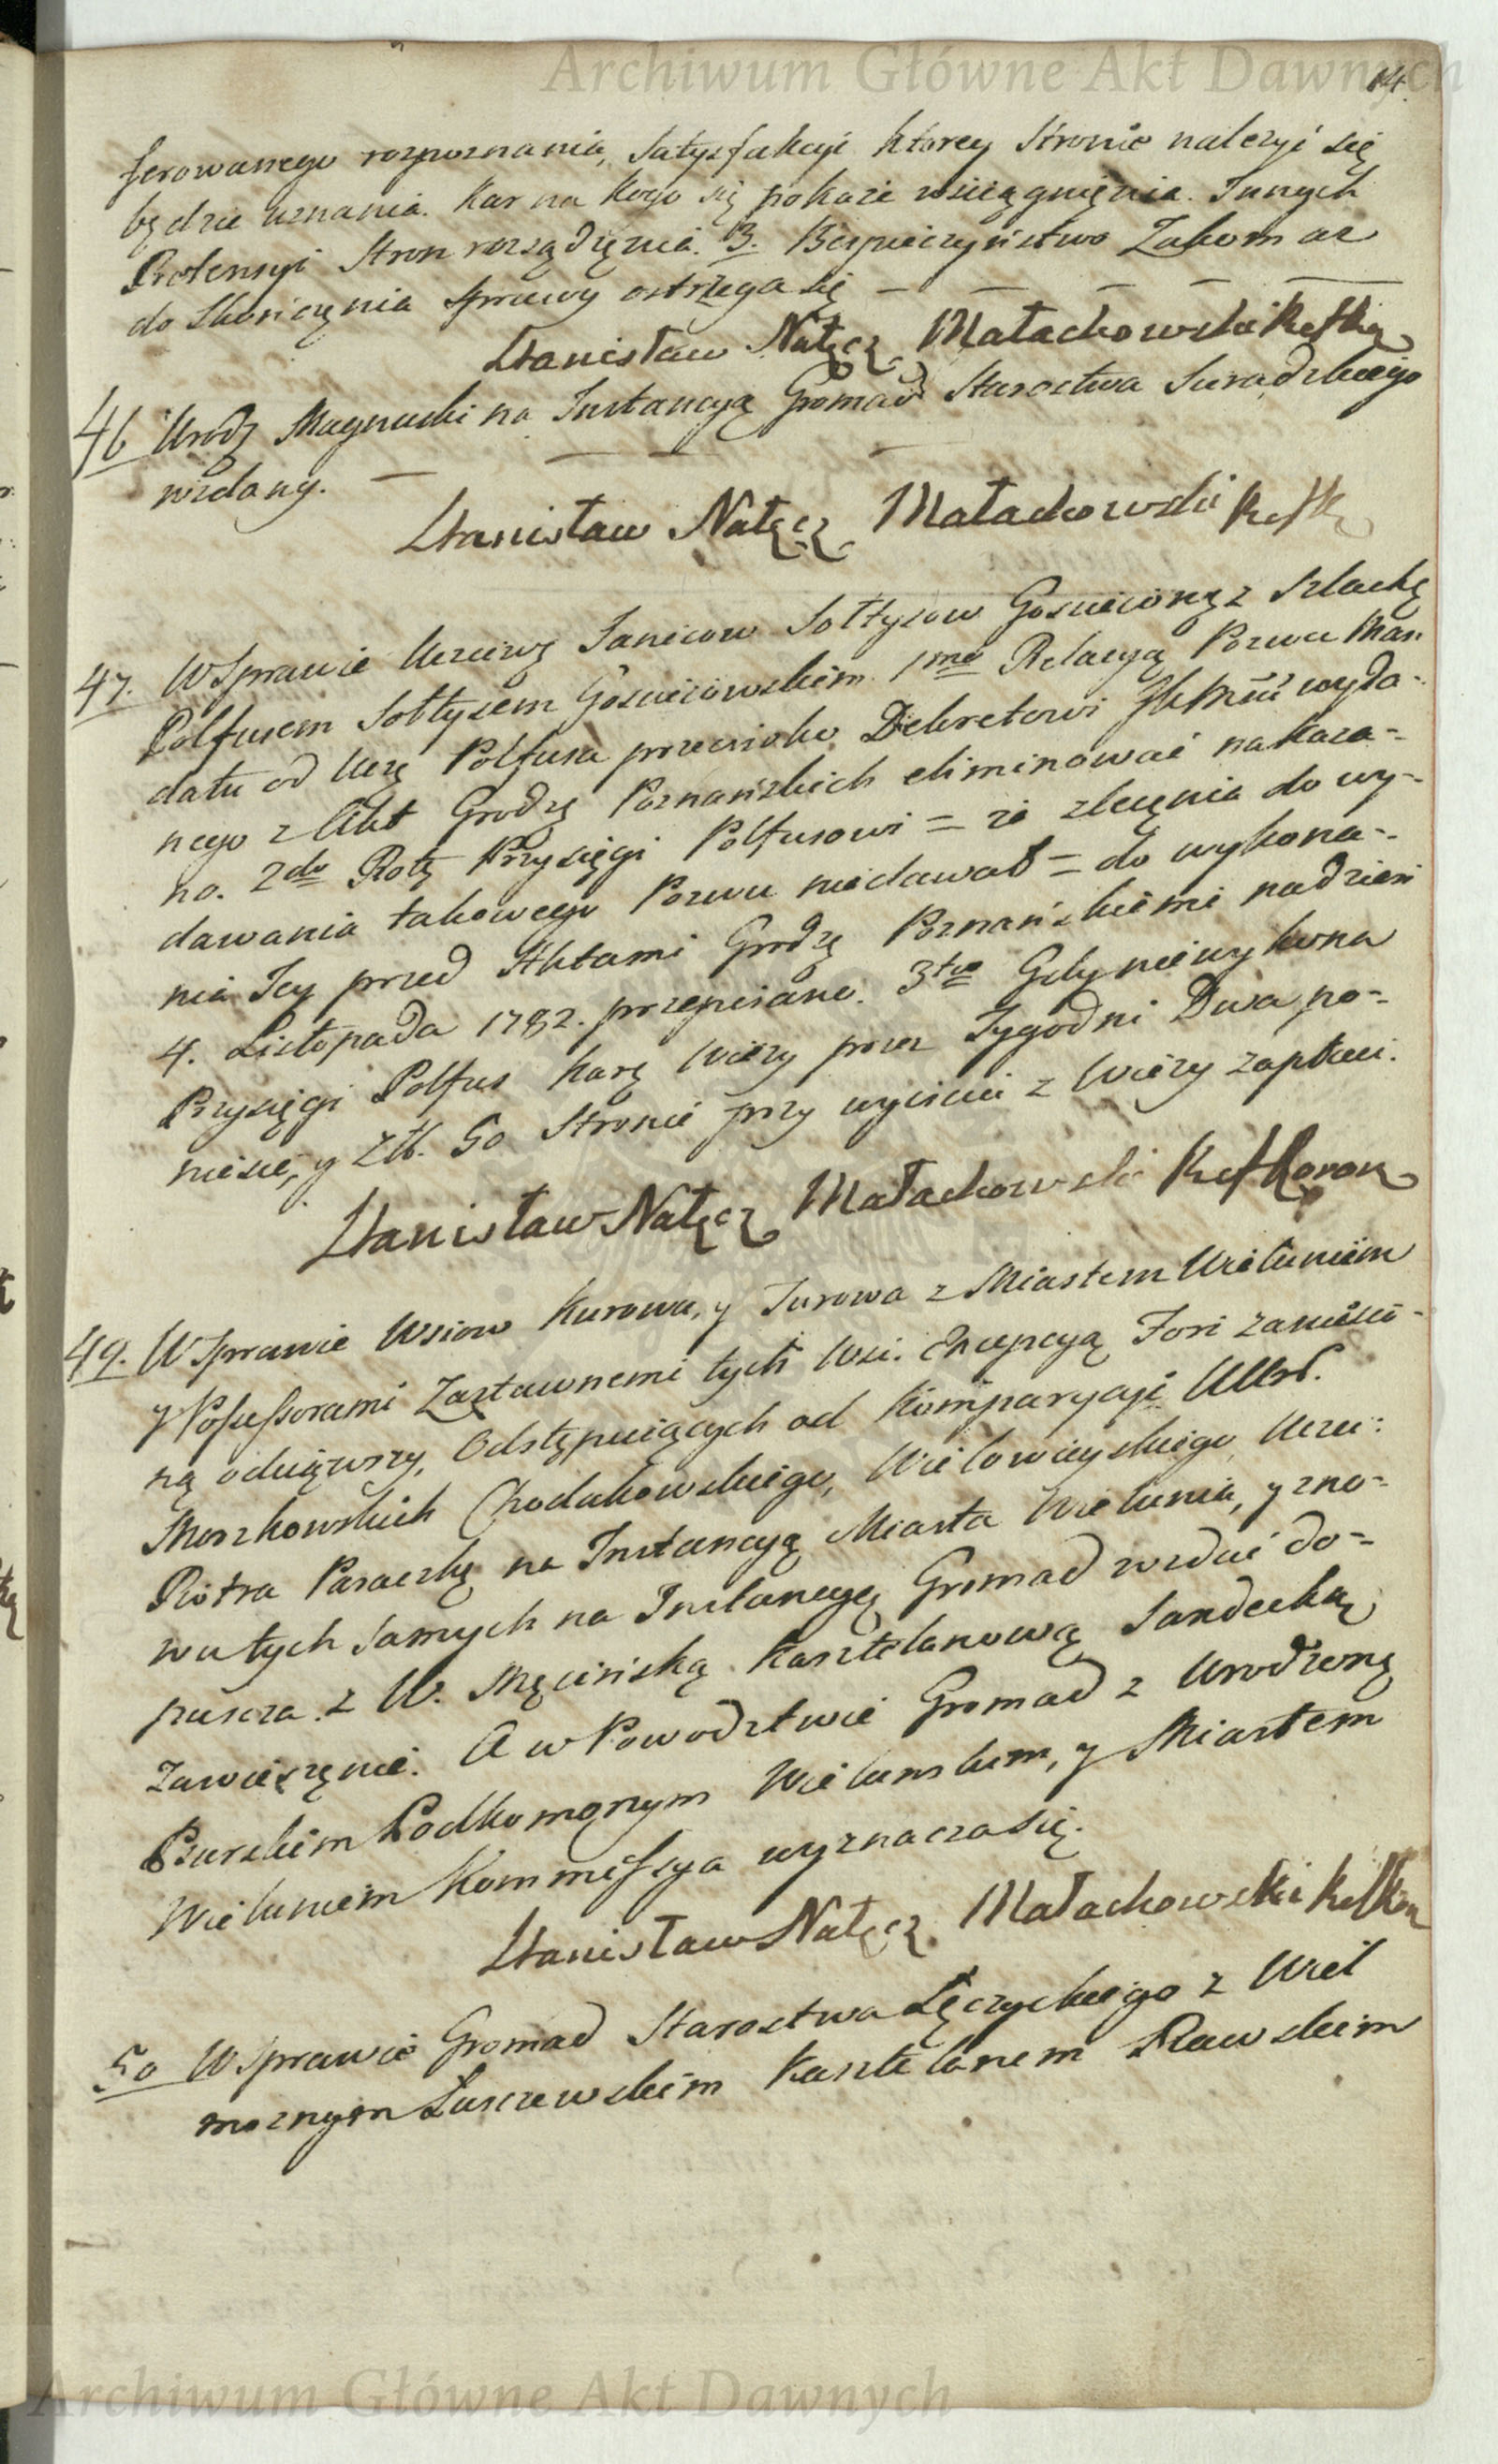 Archiwum Główne Akt Dawnych
14.
ferowanego rozpoznania, Satysfakcyi ktorey Stronie należyć się
będzie uznania. Kar na kogo się pokaże wsciągnięnia. Innych
Pretensyi Stron rozsądzęnia. 3. Bespieczyństwo Zakom az
do Skończęnia Sprawy ostrzega się
Stanisław Nałęcz Małachowski RefKo
46 Urodz Magnuski na Instancyą Gromad Starostwa Siradzkiego
wzdany.
Stanisław Nałęcz Małachowski RefKo
47. W Sprawie Uczciwę Janicow Sołtysow Gosciecinę z Szlachę
Polfusem Sołtysem Gosciecowskim. 1mo Relacyą Pozwu Man
datu od Uczę Polfusa przeciwko Dekretowi JKMści wyda-
nego z Akt Grodz Poznańskich eliminować nakaza-
no. 2do Rotę Przysięgi Polfusowi = że zlecęnia do wy-
dawania takowego Pozwu niedawał = do wykona-
nia Jey przed Aktami Grodz Poznańskiemi na dzień
4. Listopada 1782. przepisano. 3tio Gdy niewykona
Przysięgi Polfus karę Wieży przez Tygodni Dwa po-
niesie, y Zł. 50 Stronie przy wyisciu z Wieży zapłaci.
Stanisław Nałęcz Małachowski RefKoron
49. W Sprawie Wsiow Kurowa, y Turowa z Miastem Wieluniem
y Possessorami Zastawnemi tych Wsi. Excepcyą Fori zaniesio-
ną odciąwszy, Odstępuiących od Komparycyi UUrd.
Moszkowskich Chodakowskiego, Wielowieyskiego, Uczci:
Piotra Paraczkę na Instancyą Miasta Wielunia, y zno-
wu tych samych na Instancyę Gromad wzdać do-
puszcza. z W. Męcińską Kasztelanową Sandecką
zawieszęnie. A w Powodztwie Gromad z Urodzonę
Psurskim Podkomorzym Wielunskim, y Miastem
Wieluniem Kommissya wyznacza się.
Stanisław Nałęcz Małachowski RefKor
50 W Sprawie Gromad Starostwa Łęczyckiego z Wiel
moznym Łuszczewskim Kasztelanem Rawskim
Archiwum Główne Akt Dawnych